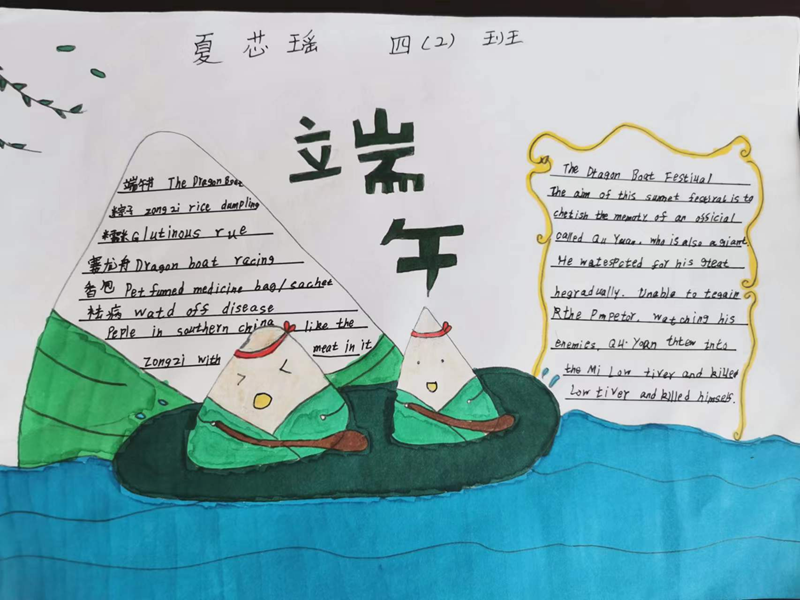 夏芯瑶 四(2)班
端
午
端午节 The Dragon Boat
粽子 zongzi rice dumpling
糯米 Glutinous rue
赛龙舟 Dragon boat racing
香包 Petfumed medicine bag/sachet
祛病 Watd off disease
Peple in southern china like the
Zongzi with meat in it
The Dtagon Boat Festiual
The aim of this sunnet festival is to
chetish the memoty of an official
called Qu Yuan, who is also a giant
He watespected for his gteat
hegradually. Unable to tegain
Rthe Pmpetor, watching his
enemies, QU. Yuan thtew into
the Mi Low tiver and killed
Low tiver and killed himself.